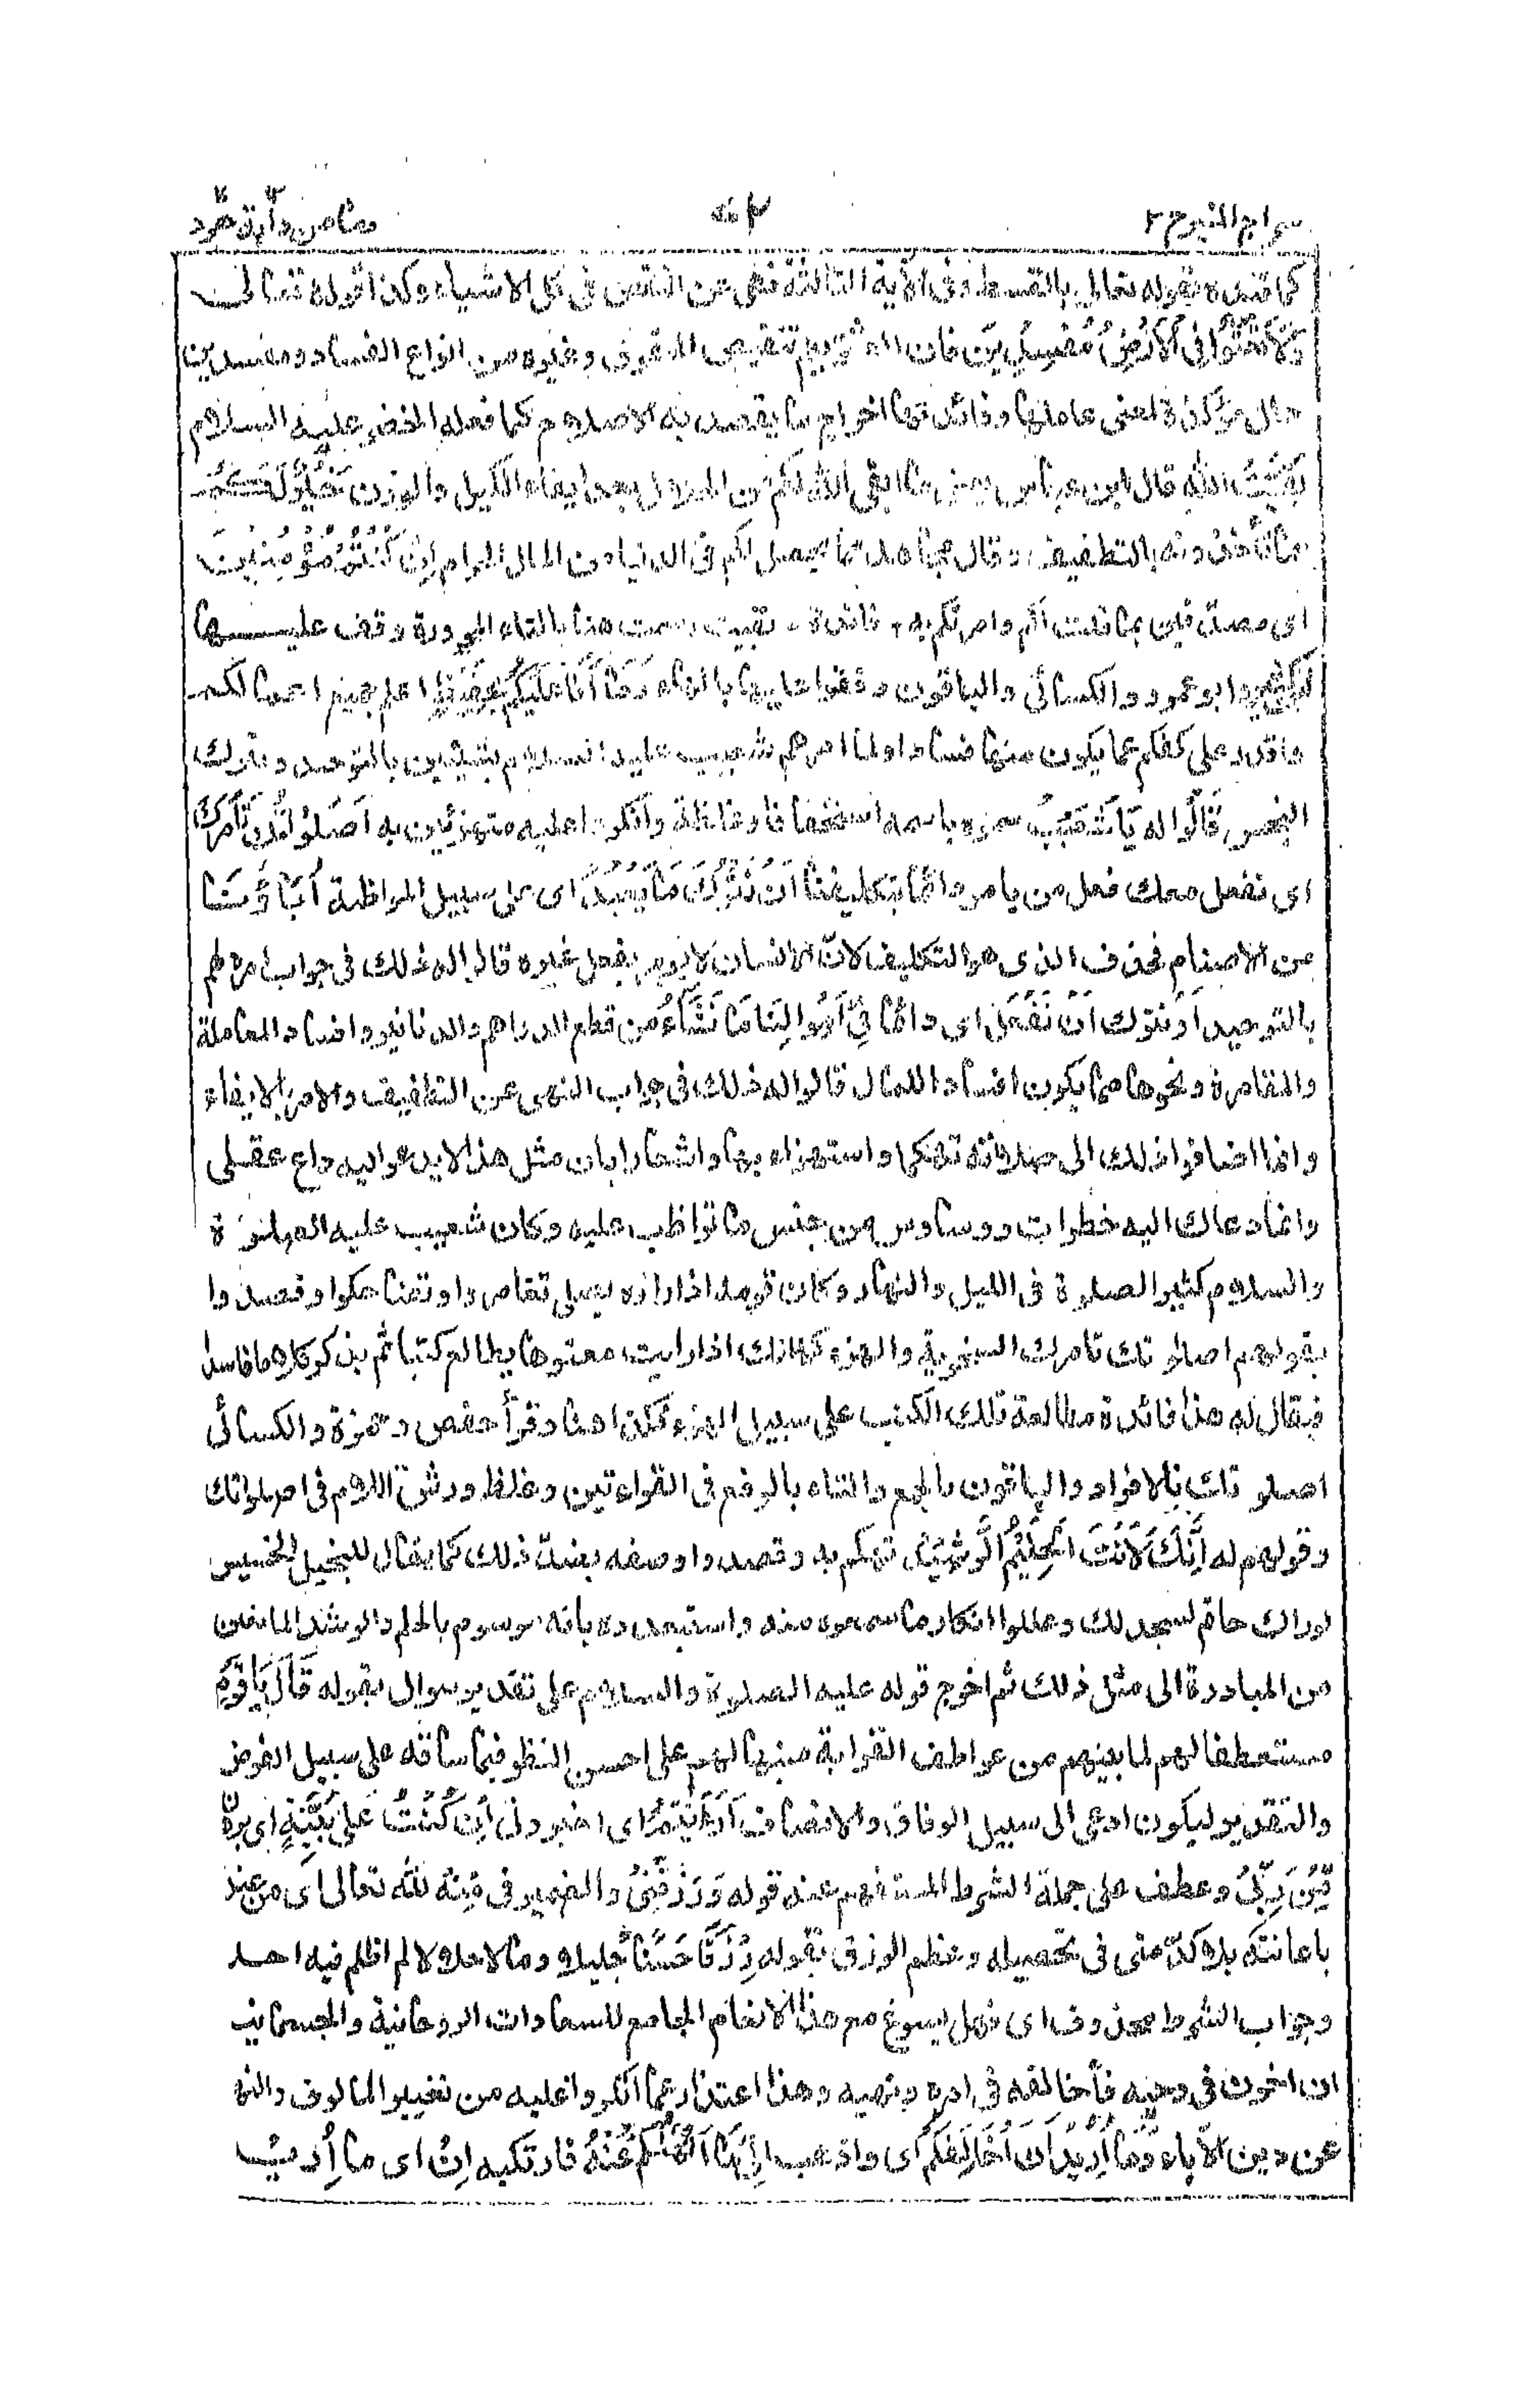 سراج المنير ج ٢
ومامن دآبة هود
كما قيده بقوله تعالى بالقسط وفى الآية الثالثة نهى عن النقص فى كل الاشياء وكذا قوله تعالى
وَلَا تَعْثَوْا فِى الْاَرْضِ مُفْسِدِيْنَ فان العثو يعم تنقيص الحقوق وغيره من انواع الفساد ومفسدين
حال مؤكدة لمعنى عاملها وفائدتها اخراج ما يقصد به الاصلاح كما فعله الخضر عليه السلام
بَقِيَّتُ اللهِ قال ابن عباس يعنى ما ابقى الله لكم من الحلال بعد ايفاء الكيل والوزن خَيْرٌ لَّكُمْ
مما تأخذونه بالتطفيف وقال مجاهد مما يحصل لكم فى الدنيا من المال الحرام اِنْ كُنْتُمْ مُّؤْمِنِيْنَ
اى مصدقين بما قلت لكم وامرتكم به فائدة بقيت رسمت هنا بالتاء المجرورة وقف عليها
ابن كثير وابو عمرو والكسائى والباقون وقفوا عليها بالتاء وَمَآ اَنَا عَلَيْكُمْ بِحَفِيْظٍ اعلم جميع اعمالكم
واقدر على كفكم عما يكون منها فسادا ولما امرهم شعيب عليه السلام بشيئين بالتوحيد وترك
البخس قَالُوْا له يَا شُعَيْبُ سموه باسمه استخفافا وغلظة وانكروا عليه متهزئين به اَصَلٰوتُكَ تَأْمُرُكَ
اى تفعل معك فعل من يامر دائما بتكليفنا اَنْ نَّتْرُكَ مَا يَعْبُدُ اى على سبيل المواظبة اٰبَآؤُنَا
من الاصنام فحذف الذى هو التكليف لانّ الانسان لا يؤمر بفعل غيره قالوا له ذلك فى جواب امرهم
بالتوحيد اَوْ نترك اَنْ نَّفْعَلَ اى دائما فِىْ اَمْوَالِنَا مَا نَشَآءُ من قطع الدراهم والدنانير وافساد المعاملة
والمقامرة ونحوها مما يكون افسادا للمال قالوا له ذلك فى جواب النهى عن التطفيف والامر بالايفاء
وانما اضافوا ذلك الى صلاته تهكما واستهزاء بها واشعارا بان مثل هذا لا يدعوا ليه داع عقلى
وانما دعاك اليه خطرات ووساوس من جنس ما تواظب عليه وكان شعيب عليه الصلوة
والسلام كثير الصلوة فى الليل والنهار وكان قومه اذا راوه يصلى تغامزوا وتضاحكوا وقصدوا
بقولهم اصلوتك تامرك السخرية والهزء كما انك اذا رايت معتوها يطالع كتبا ثم يذكر كلاما فاسدا
فيقال له هذا فائدة مطالعة تلك الكتب على سبيل الهزء فكذا هنا وقرأ حفص وحمزة والكسائى
اصلوتك بالافراد والباقون بالجمع والتاء بالرفع فى القراءتين وغلظ ورش اللام فى اصلواتك
وقولهم له اِنَّكَ لَاَنْتَ الْحَلِيْمُ الرَّشِيْدُ تهكم به وقصدوا وصفه بضدّ ذلك كما يقال للبخيل الخسيس
لوراك حاتم لسجد لك وعللوا انكار ما سمعوه منه واستبعدوه بانه موسوم بالحلم والرشد المانعين
من المبادرة الى مثل ذلك ثم اخرج قوله عليه الصلوة والسلام على تقدير سوال بقوله قَالَ يَا قَوْمِ
مستعطفا لهم لما بينهم من عواطف القرابة منبها لهم على احسن النظر فيما ساقه على سبيل الفرض
والتقدير ليكون ادعى الى سبيل الوفاق والانصاف اَرَءَيْتُمْ اى اخبرونى اِنْ كُنْتُ عَلٰى بَيِّنَةٍ اى برهان
مِّنْ رَّبِّىْ وعطف على جملة الشرط المستفهم عنه قوله وَرَزَقَنِىْ والضمير فى مِنْهُ لله تعالى اى من عنده
باعانته بلا كدّ منى فى تحصيله وعظم الرزق بقوله رِزْقًا حَسَنًا جليلا ومالا حلالا لم اظلم فيه احدا
وجواب الشرط محذوف اى فهل يسوغ مع هذا الانعام الجامع للسعادات الروحانية والجسمانية
ان اخون فى وحيه فأخالفه فى امره ونهيه وهذا اعتذار عما انكروا عليه من تغيير المالوف والنهى
عن دين الآباء وَمَآ اُرِيْدُ اَنْ اُخَالِفَكُمْ اى واذهب اِلٰى مَآ اَنْهٰكُمْ عَنْهُ فارتكبه اِنْ اى ما اُرِيْدُ